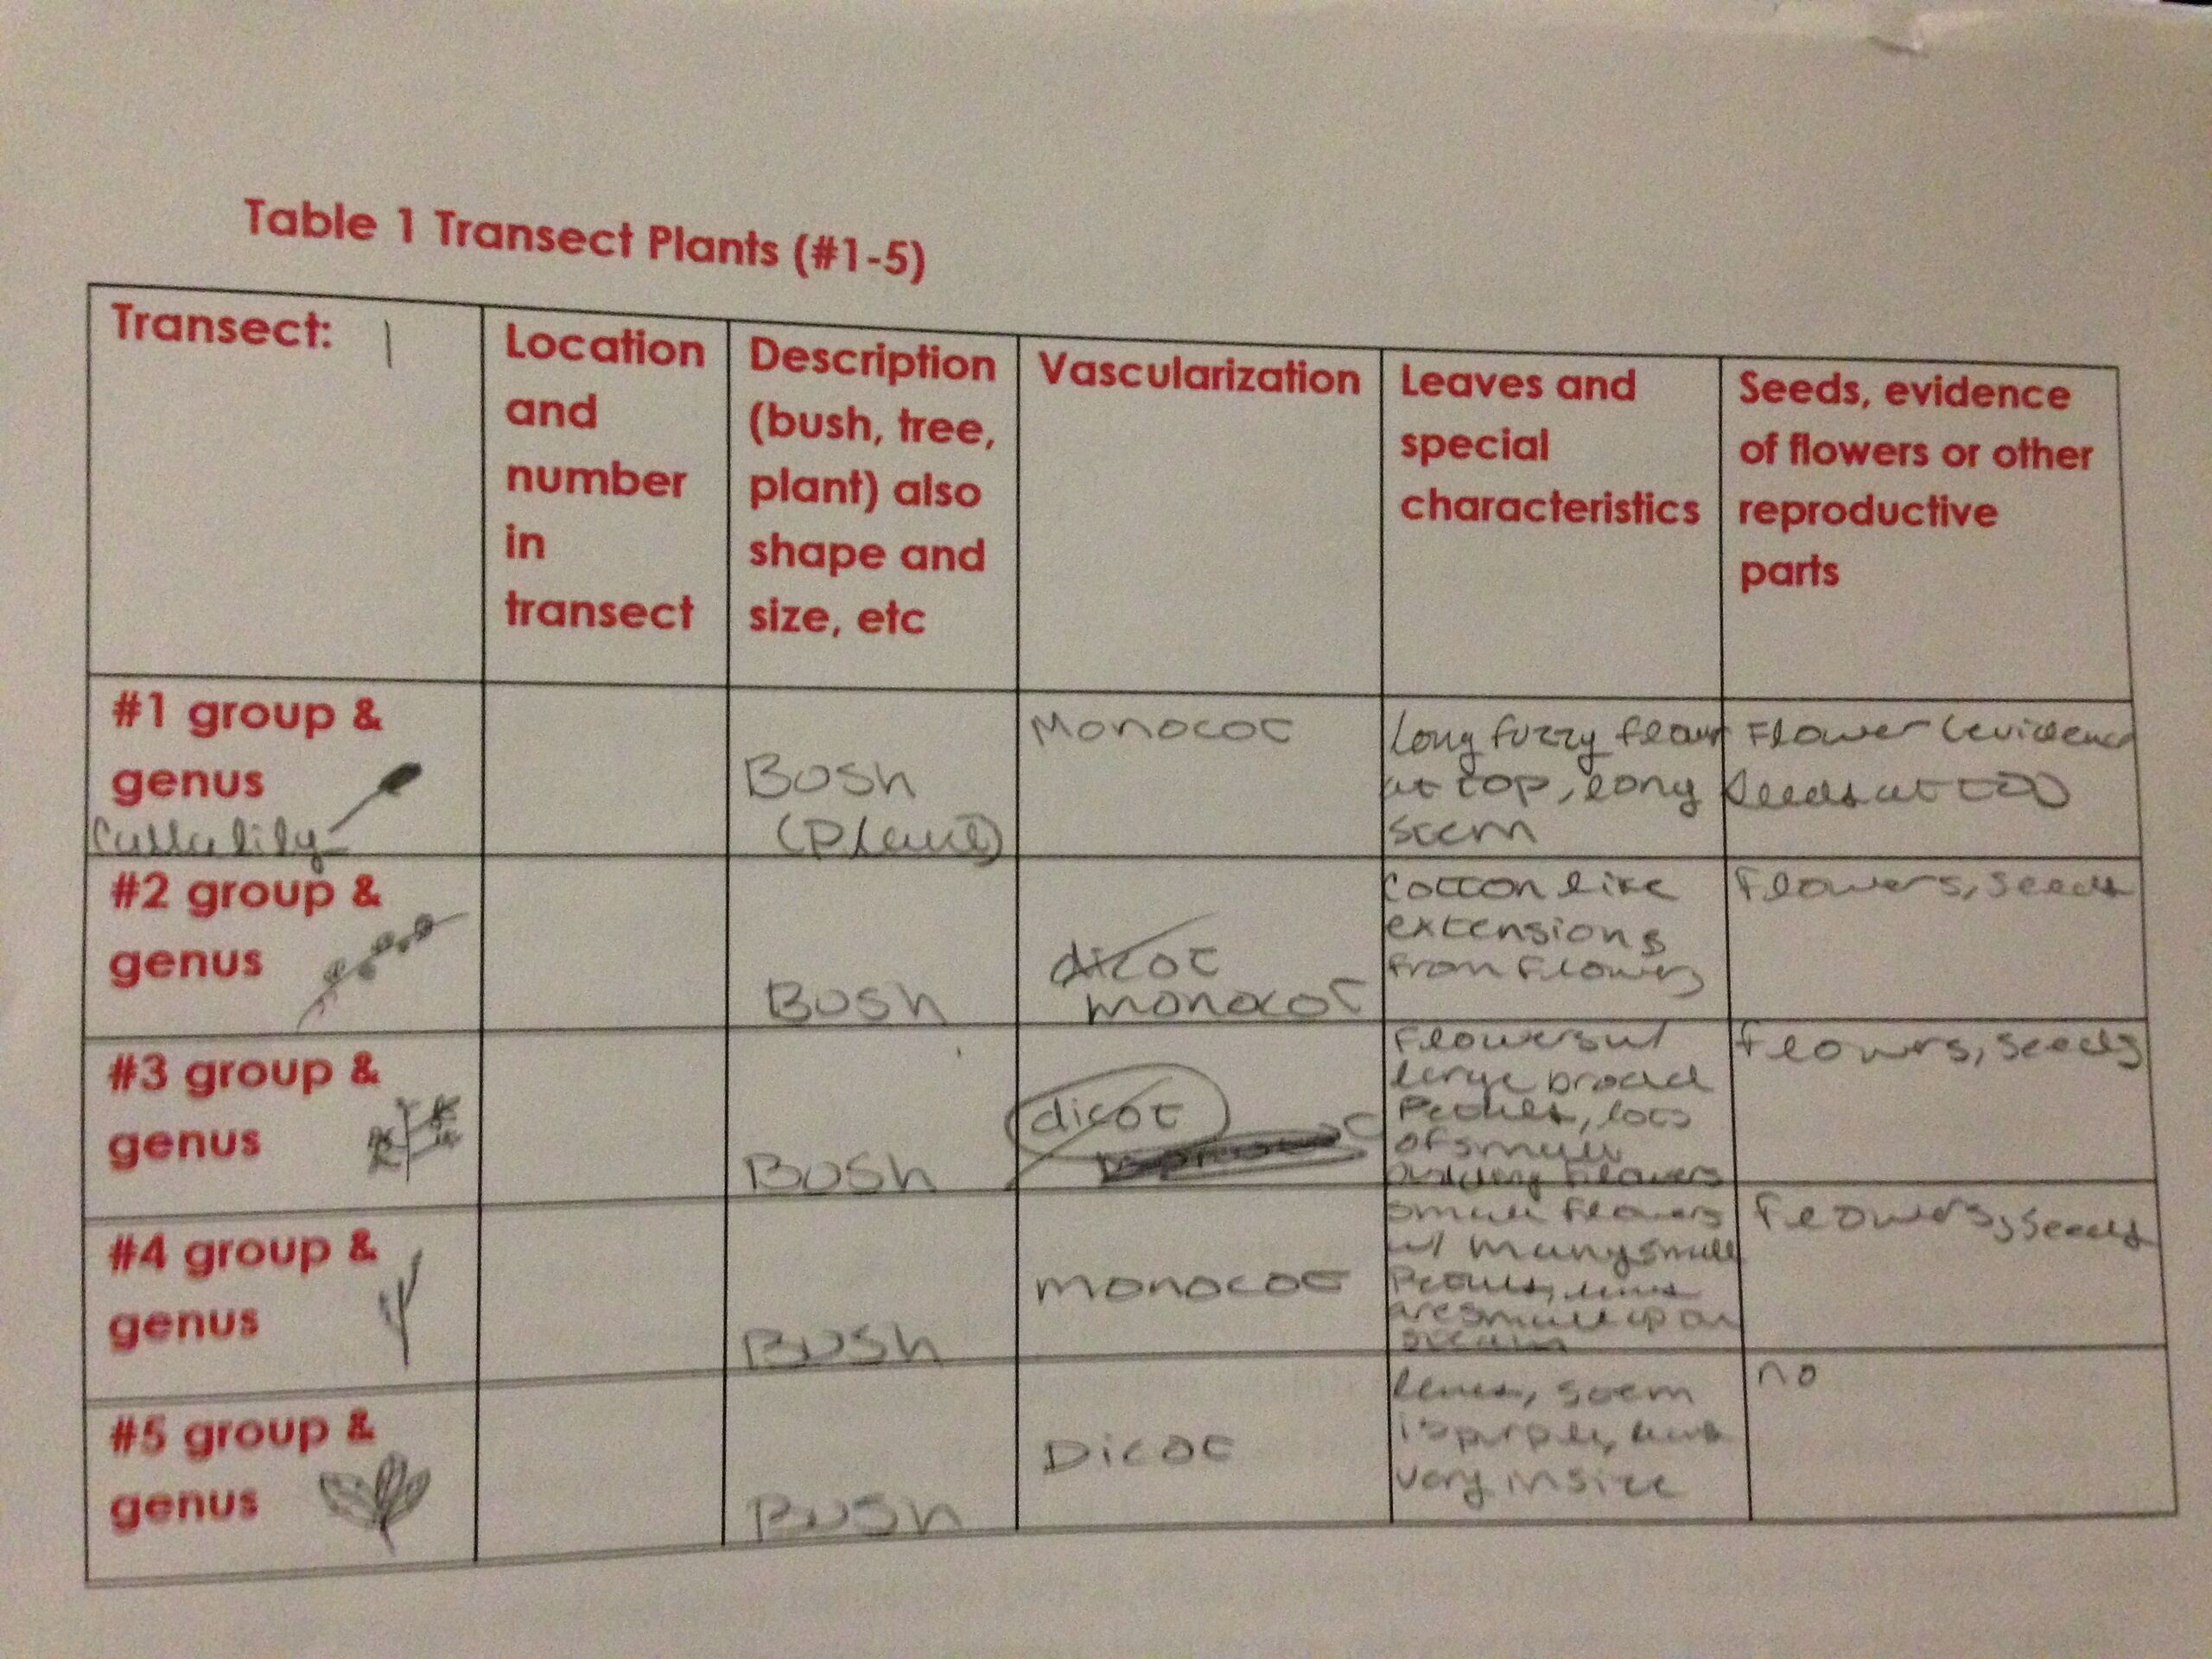 Table 1 Transect Plants (#1-5)
Transect: 1
Location
and
number
in
transect
Description
(bush, tree,
plant) also
shape and
size, etc
Vascularization
Leaves and
special
characteristics
Seeds, evidence
of flowers or other
reproductive
parts
#1 group &
genus
Calla lily
Bush
(Plant)
Monocot
Long fuzzy flower
at top, long
stem
Flower (evidence
seeds at top)
#2 group &
genus
Bush
dicot
monocot
Cotton like
extensions
from flowers
Flowers, seeds
#3 group &
genus
Bush
dicot
Flowers w/
large broad
Petals, lots
of small
flowers
flowers, seeds
#4 group &
genus
Bush
monocot
small flowers
w/ many small
Petals,
are small up on
flowers, seeds
#5 group &
genus
Bush
Dicot
stem
is purple,
vary in size
no